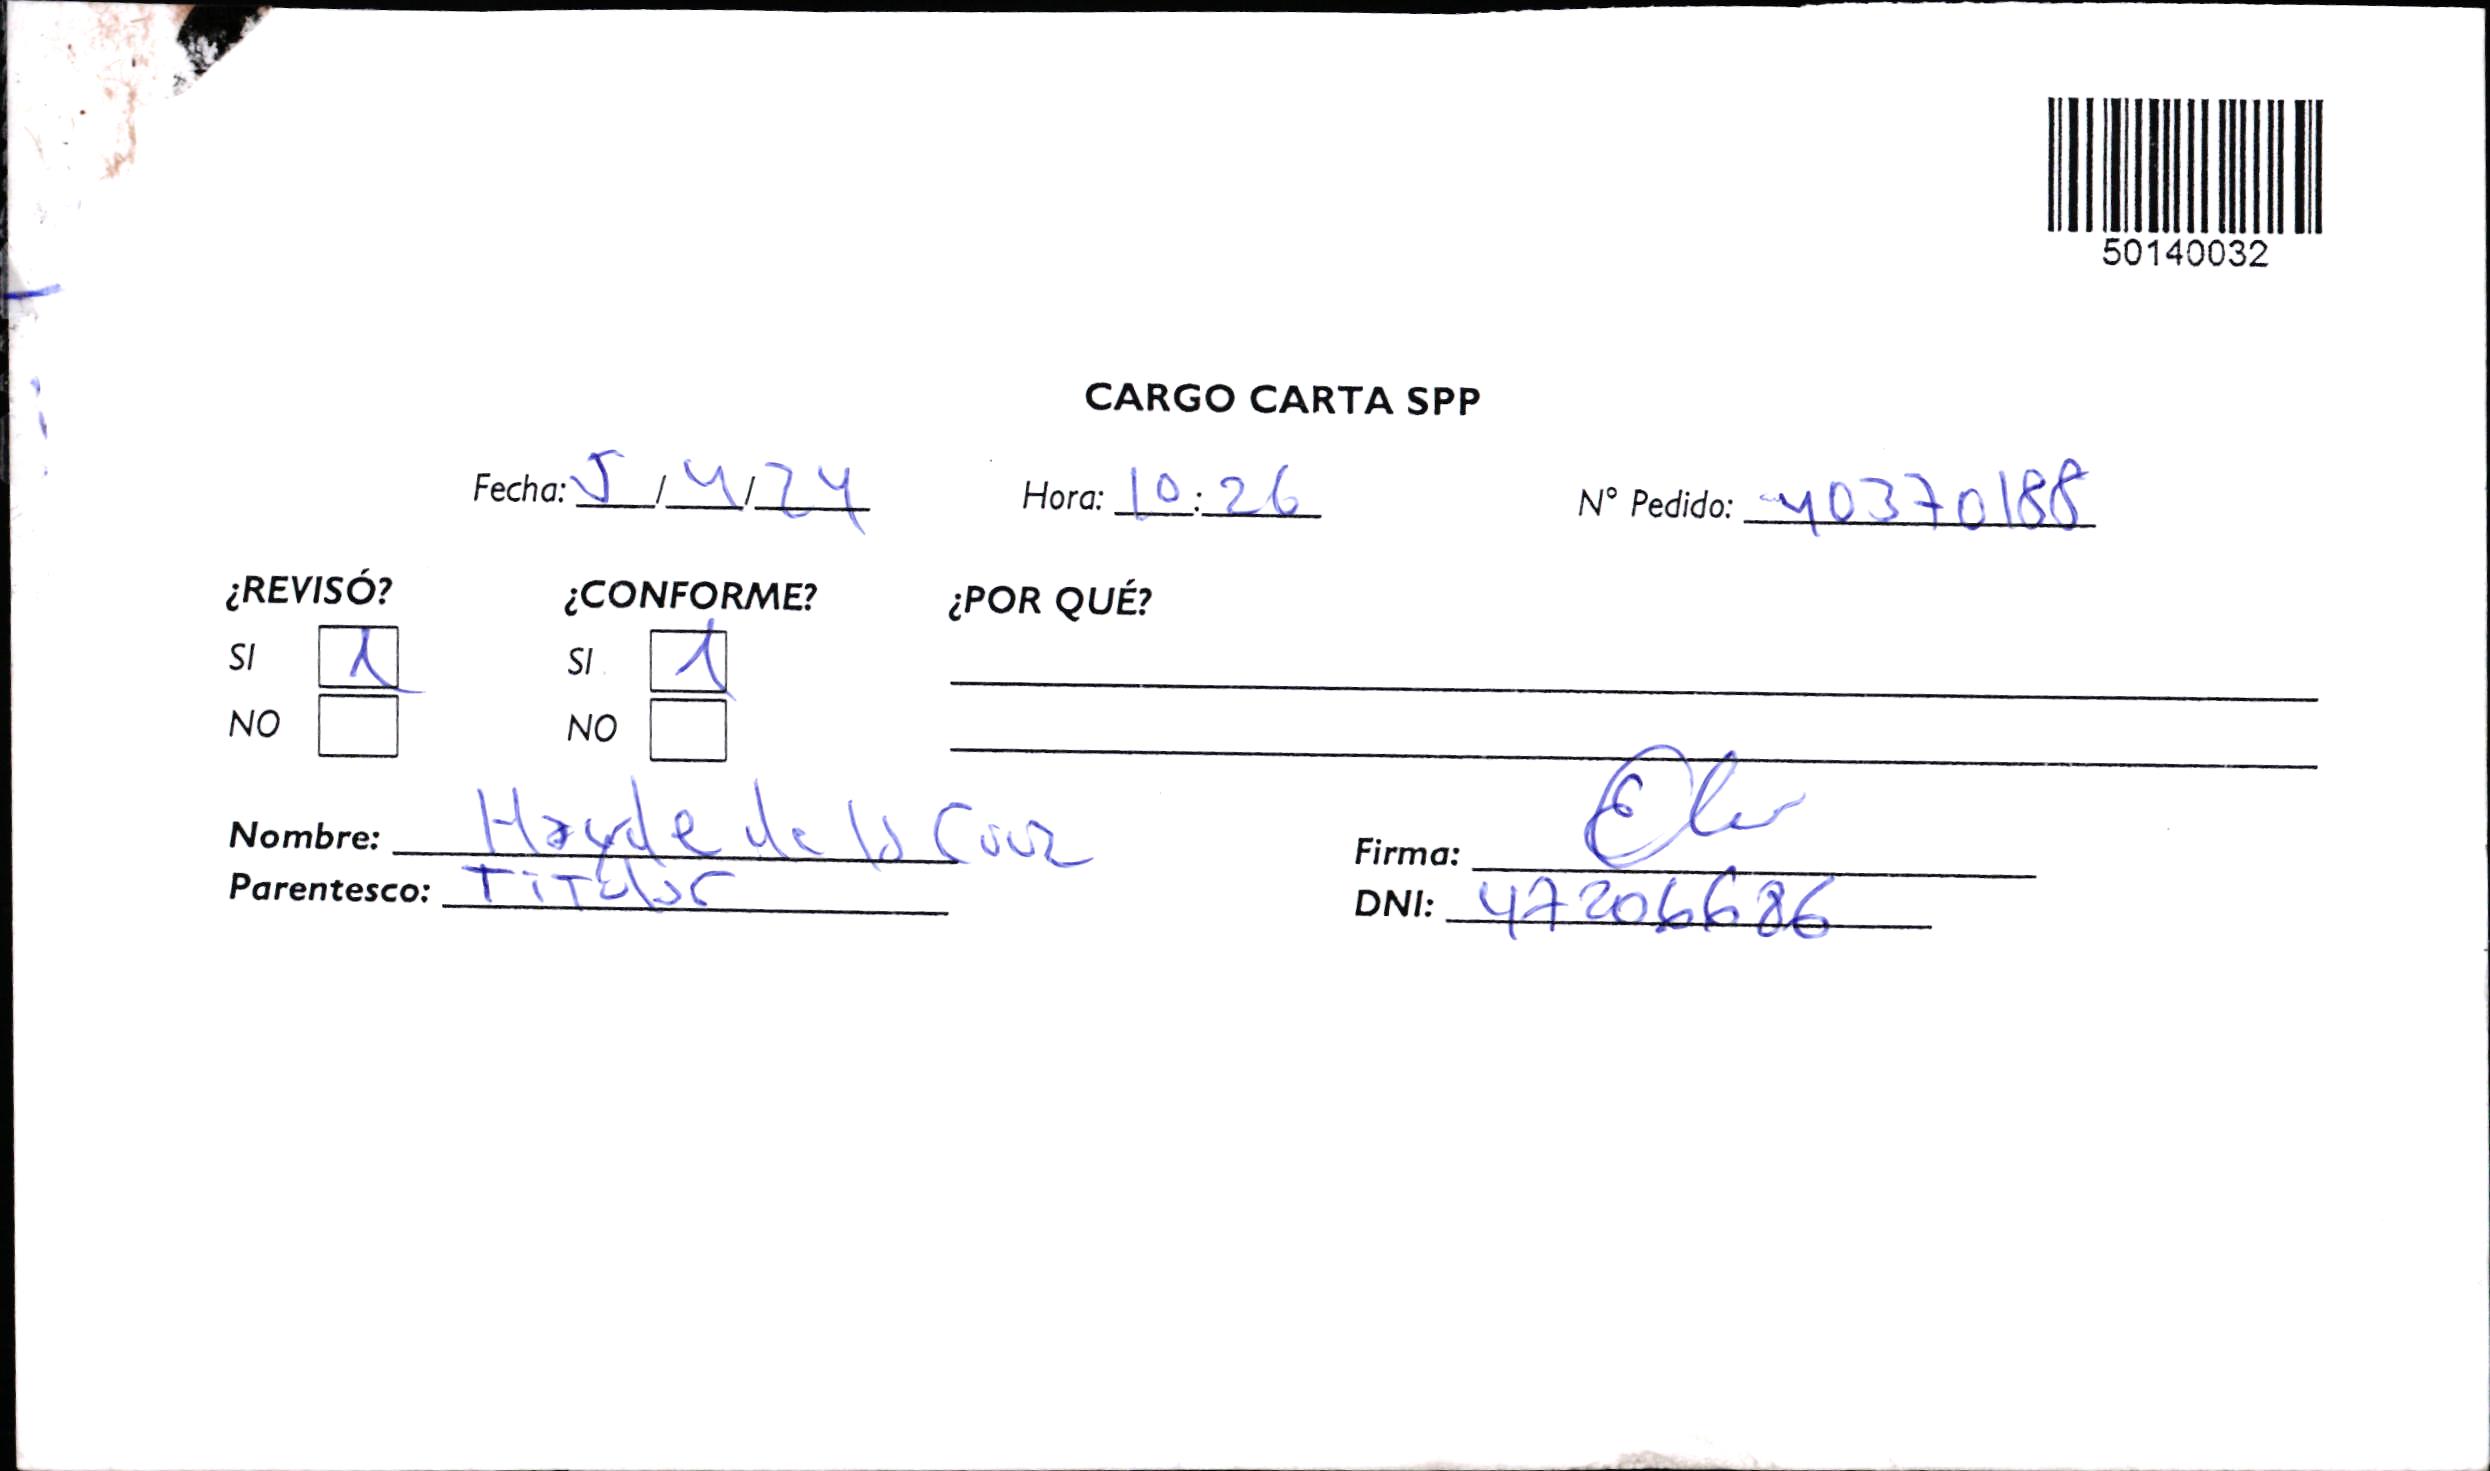 50140032
CARGO CARTA SPP
Fecha: 5/4/24 Hora: 10:26 N° Pedido: 40370188
¿REVISÓ? ¿CONFORME? ¿POR QUÉ?
SI SI
NO NO
Nombre: Hayde de la Cruz Firma:
Parentesco: Titular DNI: 47206686